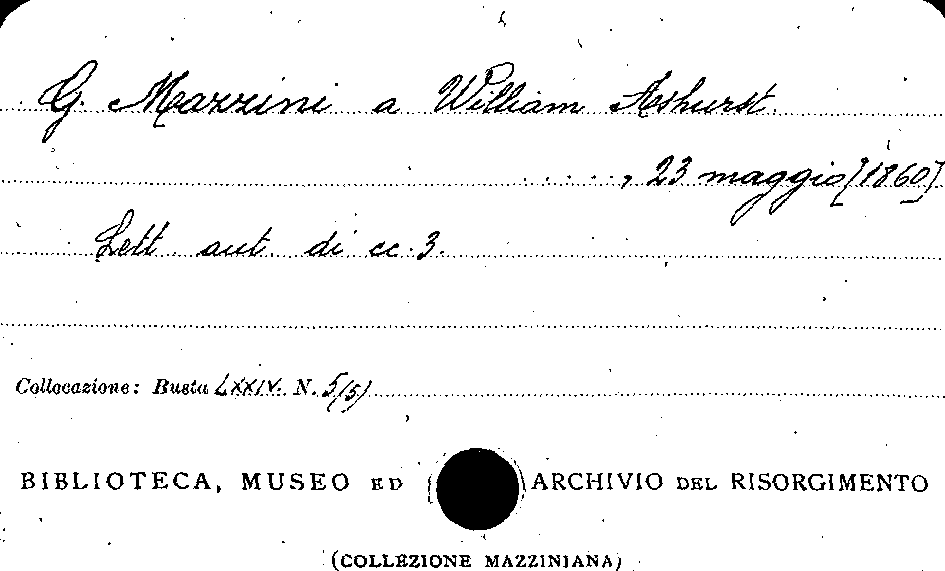 G. Mazzini a William Ashurst.
....., 23 maggio [1860]
Lett. aut. di cc. 3.
Collocazione: Busta LXXIV. N. 5(5)
BIBLIOTECA, MUSEO ED ARCHIVIO DEL RISORGIMENTO
(COLLEZIONE MAZZINIANA)